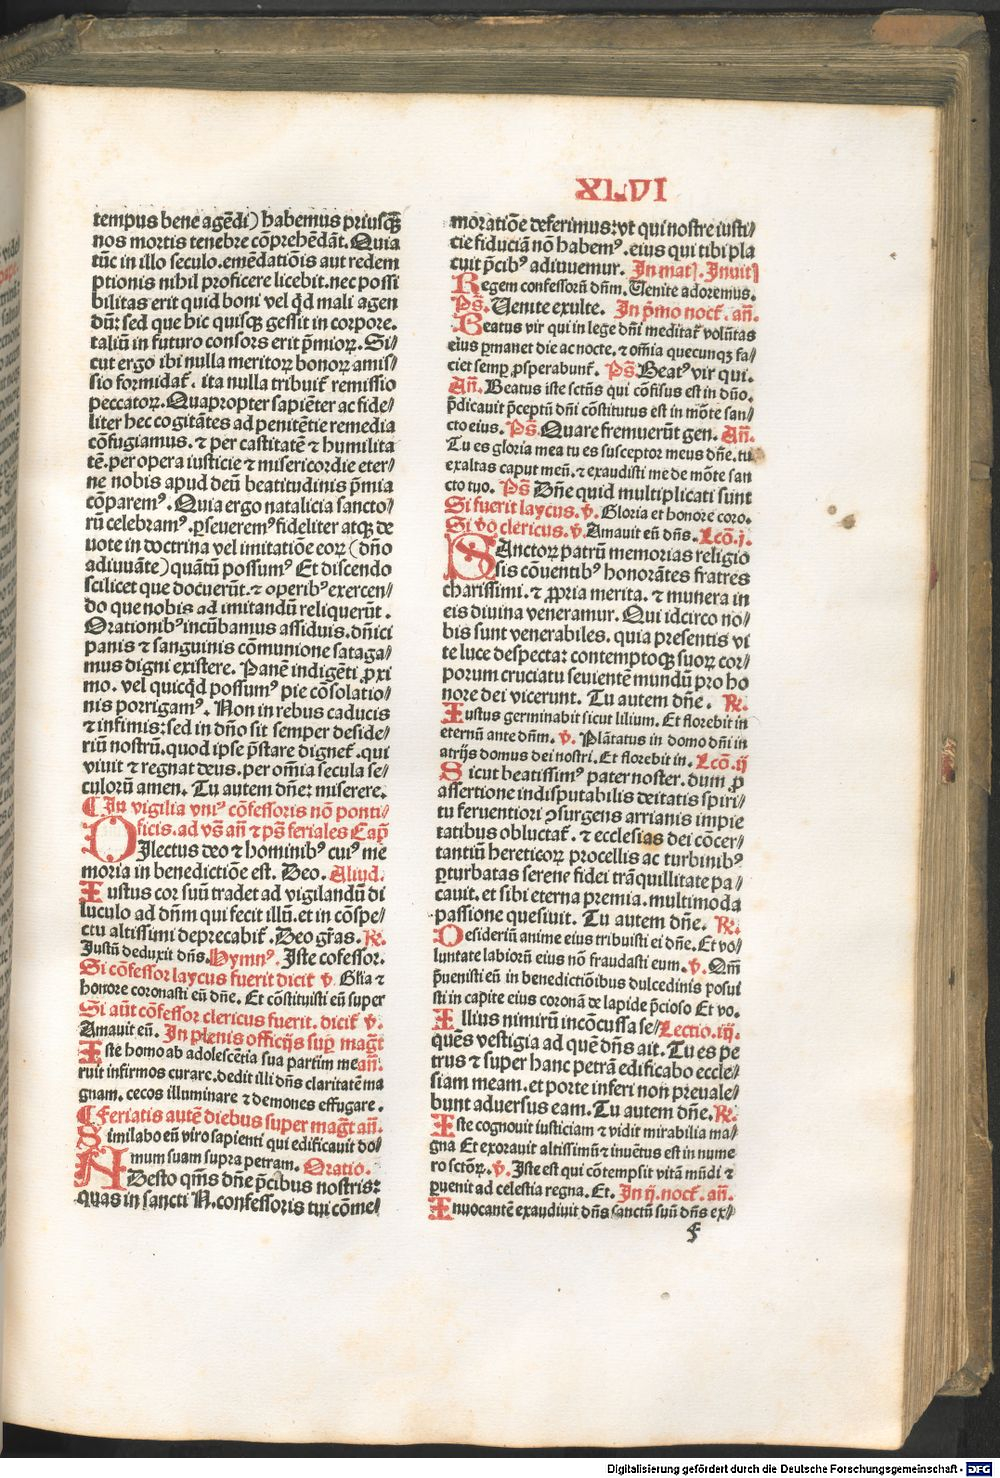 XLVI
tempus bene agẽdi) habemus priusq̃ȝ
nos mortis tenebre cõprehẽdãt. Quia
tũc in illo seculo. emẽdatiõis aut redem
ptionis nihil proficere licebit. nec possi
bilitas erit quid boni vel qd̃ mali agen
dũ: sed que hic quisqȝ gessit in corpore.
taliũ in futuro consors erit p̃mioꝝ. Si⸗
cut ergo ibi nulla meritoꝝ honoꝝ amis⸗
sio formidat᷑. ita nulla tribuit᷑ remissio
peccatoꝝ. Quapropter sapiẽter ac fide⸗
liter hec cogitãtes ad penitẽtie remedia
cõfugiamus. ⁊ per castitatẽ ⁊ humilita
tẽ. per opera iusticie ⁊ misericordie eter⸗
ne nobis apud deũ beatitudinis p̃mia
cõparemꝰ. Quia ergo natalicia sancto⸗
rũ celebramꝰ. pseueremꝰ fideliter atqȝ de
uote in doctrina vel imitatiõe eoꝝ (dño
adiuuãte) quãtũ possumꝰ Et discendo
scilicet que docuerũt. ⁊ operibꝰ exercen⸗
do que nobis ad imitandũ reliquerũt.
Orationibꝰ incũbamus assiduis. dñici
panis ⁊ sanguinis cõmunione sataga⸗
mus digni existere. Panẽ indigẽti ꝓxi
mo. vel quicqd̃ possumꝰ pie cõsolatio⸗
nis porrigamꝰ. Non in rebus caducis
⁊ infimis: sed in dño sit semper deside⸗
riũ nostrũ. quod ipse p̃stare dignet᷑. qui
viuit ⁊ regnat deus. per om̃ia secula se⸗
culorũ amen. Tu autem dñe: miserere.
¶ In vigilia vniꝰ cõfessoris nõ ponti⸗
ficis. ad vs̃ añ ⁊ ps̃ feriales Cap̃
DIlectus deo ⁊ hominibꝰ cuiꝰ me
moria in benedictiõe est. Deo. Aliud.
Iustus cor suũ tradet ad vigilandũ di
luculo ad dñm qui fecit illũ. et in cõspe⸗
ctu altissimi deprecabit᷑. Deo gr̃as. ℞.
Justũ deduxit dñs. Hymnꝰ. Iste cofessor.
Si cõfessor laycus fuerit dicit᷑ v̕. Glia ⁊
honore coronasti eũ dñe. Et cõstituisti eũ super
Si aũt cõfessor clericus fuerit. dicit᷑ v̕.
Amauit eũ. In plenis officijs sup mag̃t
Iste homo ab adolescẽtia sua partim me añ.
ruit infirmos curare. dedit illi dñs claritatẽ ma
gnam. cecos illuminare ⁊ demones effugare.
¶ Feriatis autẽ diebus super mag̃t añ.
Similabo eũ viro sapienti qui edificauit do⸗
mum suam supra petram. Oratio.
ADesto qm̃s dñe p̃cibus nostris:
quas in sancti N. confessoris tui cõme⸗
moratiõe deferimus: vt qui nostre iusti⸗
cie fiduciã nõ habemꝰ. eius qui tibi pla
cuit p̃cibꝰ adiuuemur. In mat. Inuit
Regem confessorũ dñm. Venite adoremus.
Ps̃. Uenite exulte. In p̃mo noct᷑. añ.
Beatus vir qui in lege dñi meditat᷑ volũtas
eiꝰ pmanet die ac nocte. ⁊ om̃ia quecunqȝ fa⸗
ciet semp ꝓsperabunt᷑. Ps̃. Beatꝰ vir qui.
Añ. Beatus iste sctũs qui cõfisus est in dño.
p̃dicauit p̃ceptũ dñi cõstitutus est in mõte san⸗
cto eius. Ps̃. Quare fremuerũt gen. Añ.
Tu es gloria mea tu es susceptor meus dñe. tu
exaltas caput meũ. ⁊ exaudisti me de mõte san
cto tuo. Ps̃ Dñe quid multiplicati sunt
Si fuerit laycus. v̕. Gloria et honore coro.
Si v̕o clericus. v̕. Amauit eũ dñs. Lcõ. j.
SAnctoꝝ patrũ memorias religio
sis cõuentibꝰ honorãtes fratres
charissimi. ⁊ ꝓpria merita. ⁊ munera in
eis diuina veneramur. Qui idcirco no⸗
bis sunt venerabiles. quia presentis vi
te luce despecta: contemptoqȝ suoꝝ cor⸗
porum cruciatu seuientẽ mundũ pro ho
nore dei vicerunt. Tu autem dñe. ℞.
Iustus germinabit sicut lilium. Et florebit in
eternũ ante dñm. v̕. Plãtatus in domo dñi in
atrijs domus dei nostri. Et florebit in. Lcõ. ij
Sicut beatissimꝰ pater noster. dum ꝓ
assertione indisputabilis deitatis spiri⸗
tu feruentiori ↄsurgens arrianis impie
tatibus obluctat᷑. ⁊ ecclesias dei cõcer⸗
tantiũ hereticoꝝ procellis ac turbinibꝰ
pturbatas serene fidei trãquillitate pa⸗
cauit. et sibi eterna premia. multimoda
passione quesiuit. Tu autem dñe. ℞.
Desideriũ anime eius tribuisti ei dñe. Et vo⸗
luntate labiorũ eius nõ fraudasti eum. v̕. Qm̃
p̃uenisti eũ in benedictiõibus dulcedinis posui
sti in capite eius coronã de lapide p̃cioso Et vo.
Illius nimirũ incõcussa se⸗ Lectio. iij.
quẽs vestigia ad quẽ dñs ait. Tu es pe
trus ⁊ super hanc petrã edificabo eccle⸗
siam meam. et porte inferi non preuale⸗
bunt aduersus eam. Tu autem dñe. ℞.
Iste cognouit iusticiam ⁊ vidit mirabilia ma⸗
gna Et exorauit altissimũ ⁊ inuẽtus est in nume
ro sctõꝝ. v̕. Iste est qui cõtempsit vitã mũdi ⁊
puenit ad celestia regna. Et. In ij. noct᷑. añ.
Inuocantẽ exaudiuit dñs sanctũ suũ dñs ex⸗
Digitalisierung gefördert durch die Deutsche Forschungsgemeinschaft - DFG